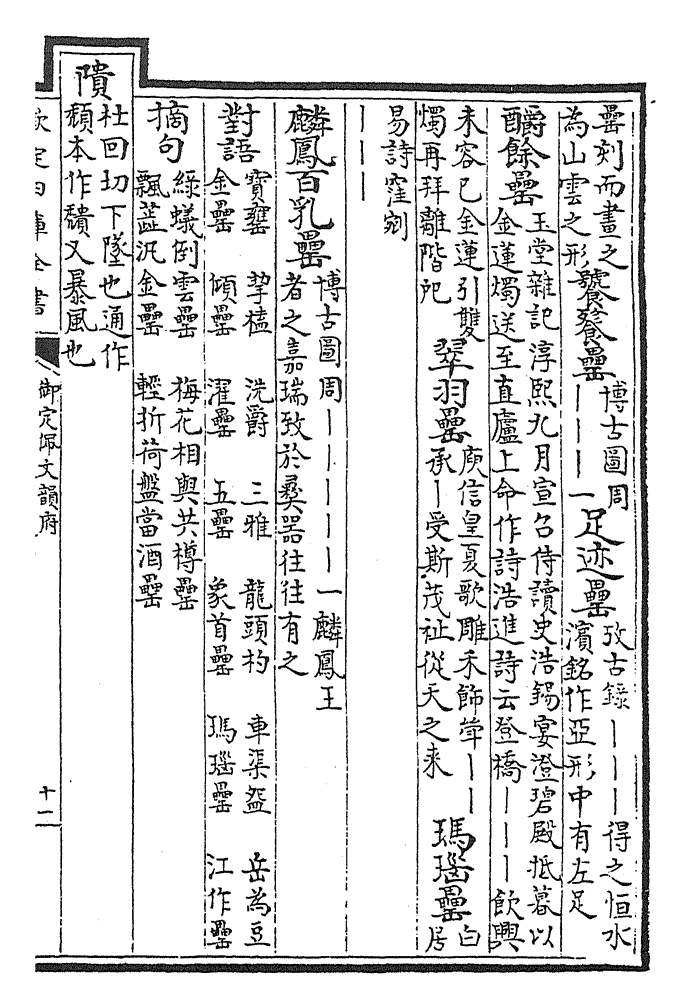 罍刻而畫之
為山雲之形
饕餮罍
博古圖周
丨丨丨一
足迹罍
攷古錄丨丨丨得之恒水
濵銘作亞形中有左足
釂餘罍
玉堂雜記淳熙九月宣召侍讀史浩錫宴澄碧殿抵暮以
金蓮燭送至直廬上命作詩浩進詩云登橋丨丨丨飲興
未容已金蓮引雙
燭再拜離階戺
翠羽罍
庾信皇夏歌雕禾飾斝丨丨
承丨受斯茂祉從天之来
瑪瑙罍
白
居
易詩窪剜
丨丨丨
麟鳳百乳罍
博古圖周丨丨丨丨丨一麟鳳王
者之嘉瑞致於彛器往往有之
對語
寶甕 挈榼 洗爵 三雅 龍頭杓 車渠盌 岳為豆
金罍 傾罍 濯罍 五罍 象首罍 瑪瑙罍 江作罍
摘句
綠蟻倒雲罍 梅花相與共樽罍
飄蕋汎金罍 輕折荷盤當酒罍
隤
杜回切下墜也通作
頹本作穨又暴風也
欽定四庫全書
御定佩文韻府
十二